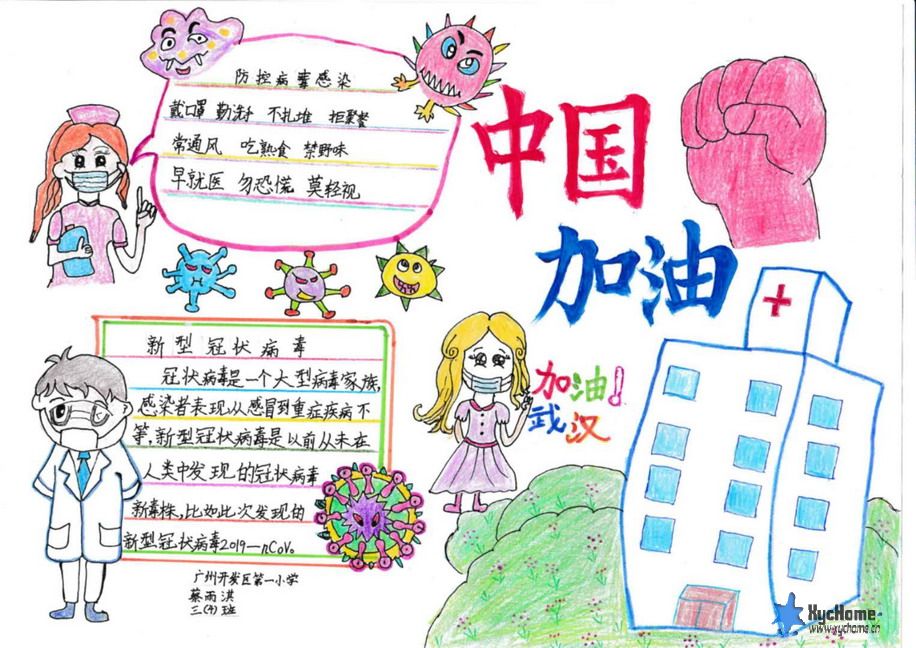 防控病毒感染
戴口罩 勤洗手 不扎堆 拒聚餐
常通风 吃熟食 禁野味
早就医 勿恐慌 莫轻视
中国
加油
加油!
武汉
新型冠状病毒
冠状病毒是一个大型病毒家族,
感染者表现从感冒到重症疾病不
等,新型冠状病毒是以前从未在
人类中发现的冠状病毒
新毒株,比如此次发现的
新型冠状病毒2019-nCoV。
广州开发区第一小学
蔡雨淇
三(4)班
XycHome
www.xychome.cn